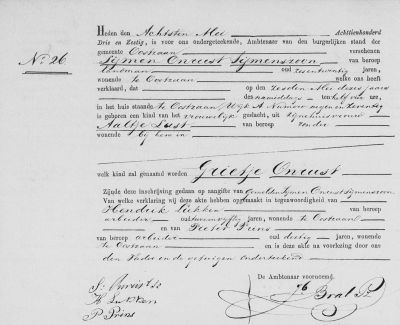 No 26
Heden den Achtsten Mei Achttienhonderd
Drie en Zestig, is voor ons ondergeteekende, Ambtenaar van den burgerlijken stand der
gemeente Oostzaan verschenen
Sijmen Onrust Sijmenszoon van beroep
landman oud zesentwintig jaren,
wonende te Oostzaan welke ons heeft
verklaard, dat op den zesden Mei dezes jaars
des namiddags ten half vier ure,
in het huis staande te Oostzaan, Wijk A Numero negen en zeventig
is geboren een kind van het vrouwelijk geslacht, uit zijne huisvrouw
Aaltje Last van beroep zonder
wonende bij hem in
welk kind zal genaamd worden Grietje Onrust
Zijnde deze inschrijving gedaan op aangifte van Gemelden Sijmen Onrust Sijmenszoon.
Van welke verklaring wij deze akte hebben opgemaakt in tegenwoordigheid van
Hendrik Lukken van beroep
arbeider oud vijftig jaren, wonende te Oostzaan
en van Pieter Prins
van beroep arbeider oud dertig jaren, wonende
te Oostzaan en is deze akte na voorlezing door ons
den Vader en de getuigen onderteekend.
De Ambtenaar voornoemd.
S: Onrust Sz
H Lukken
P Prins
Brat Pz